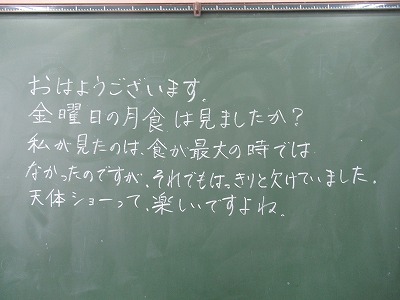 おはようございます.
金曜日の月食は見ましたか?
私が見たのは、食が最大の時では
なかったのですが、それでもはっきりと欠けていました.
天体ショーって、楽しいですよね.